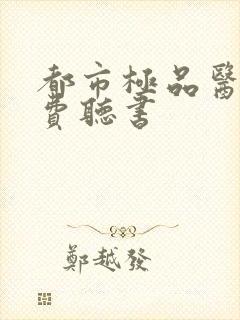 都市極品醫
費聽書
鄭越發